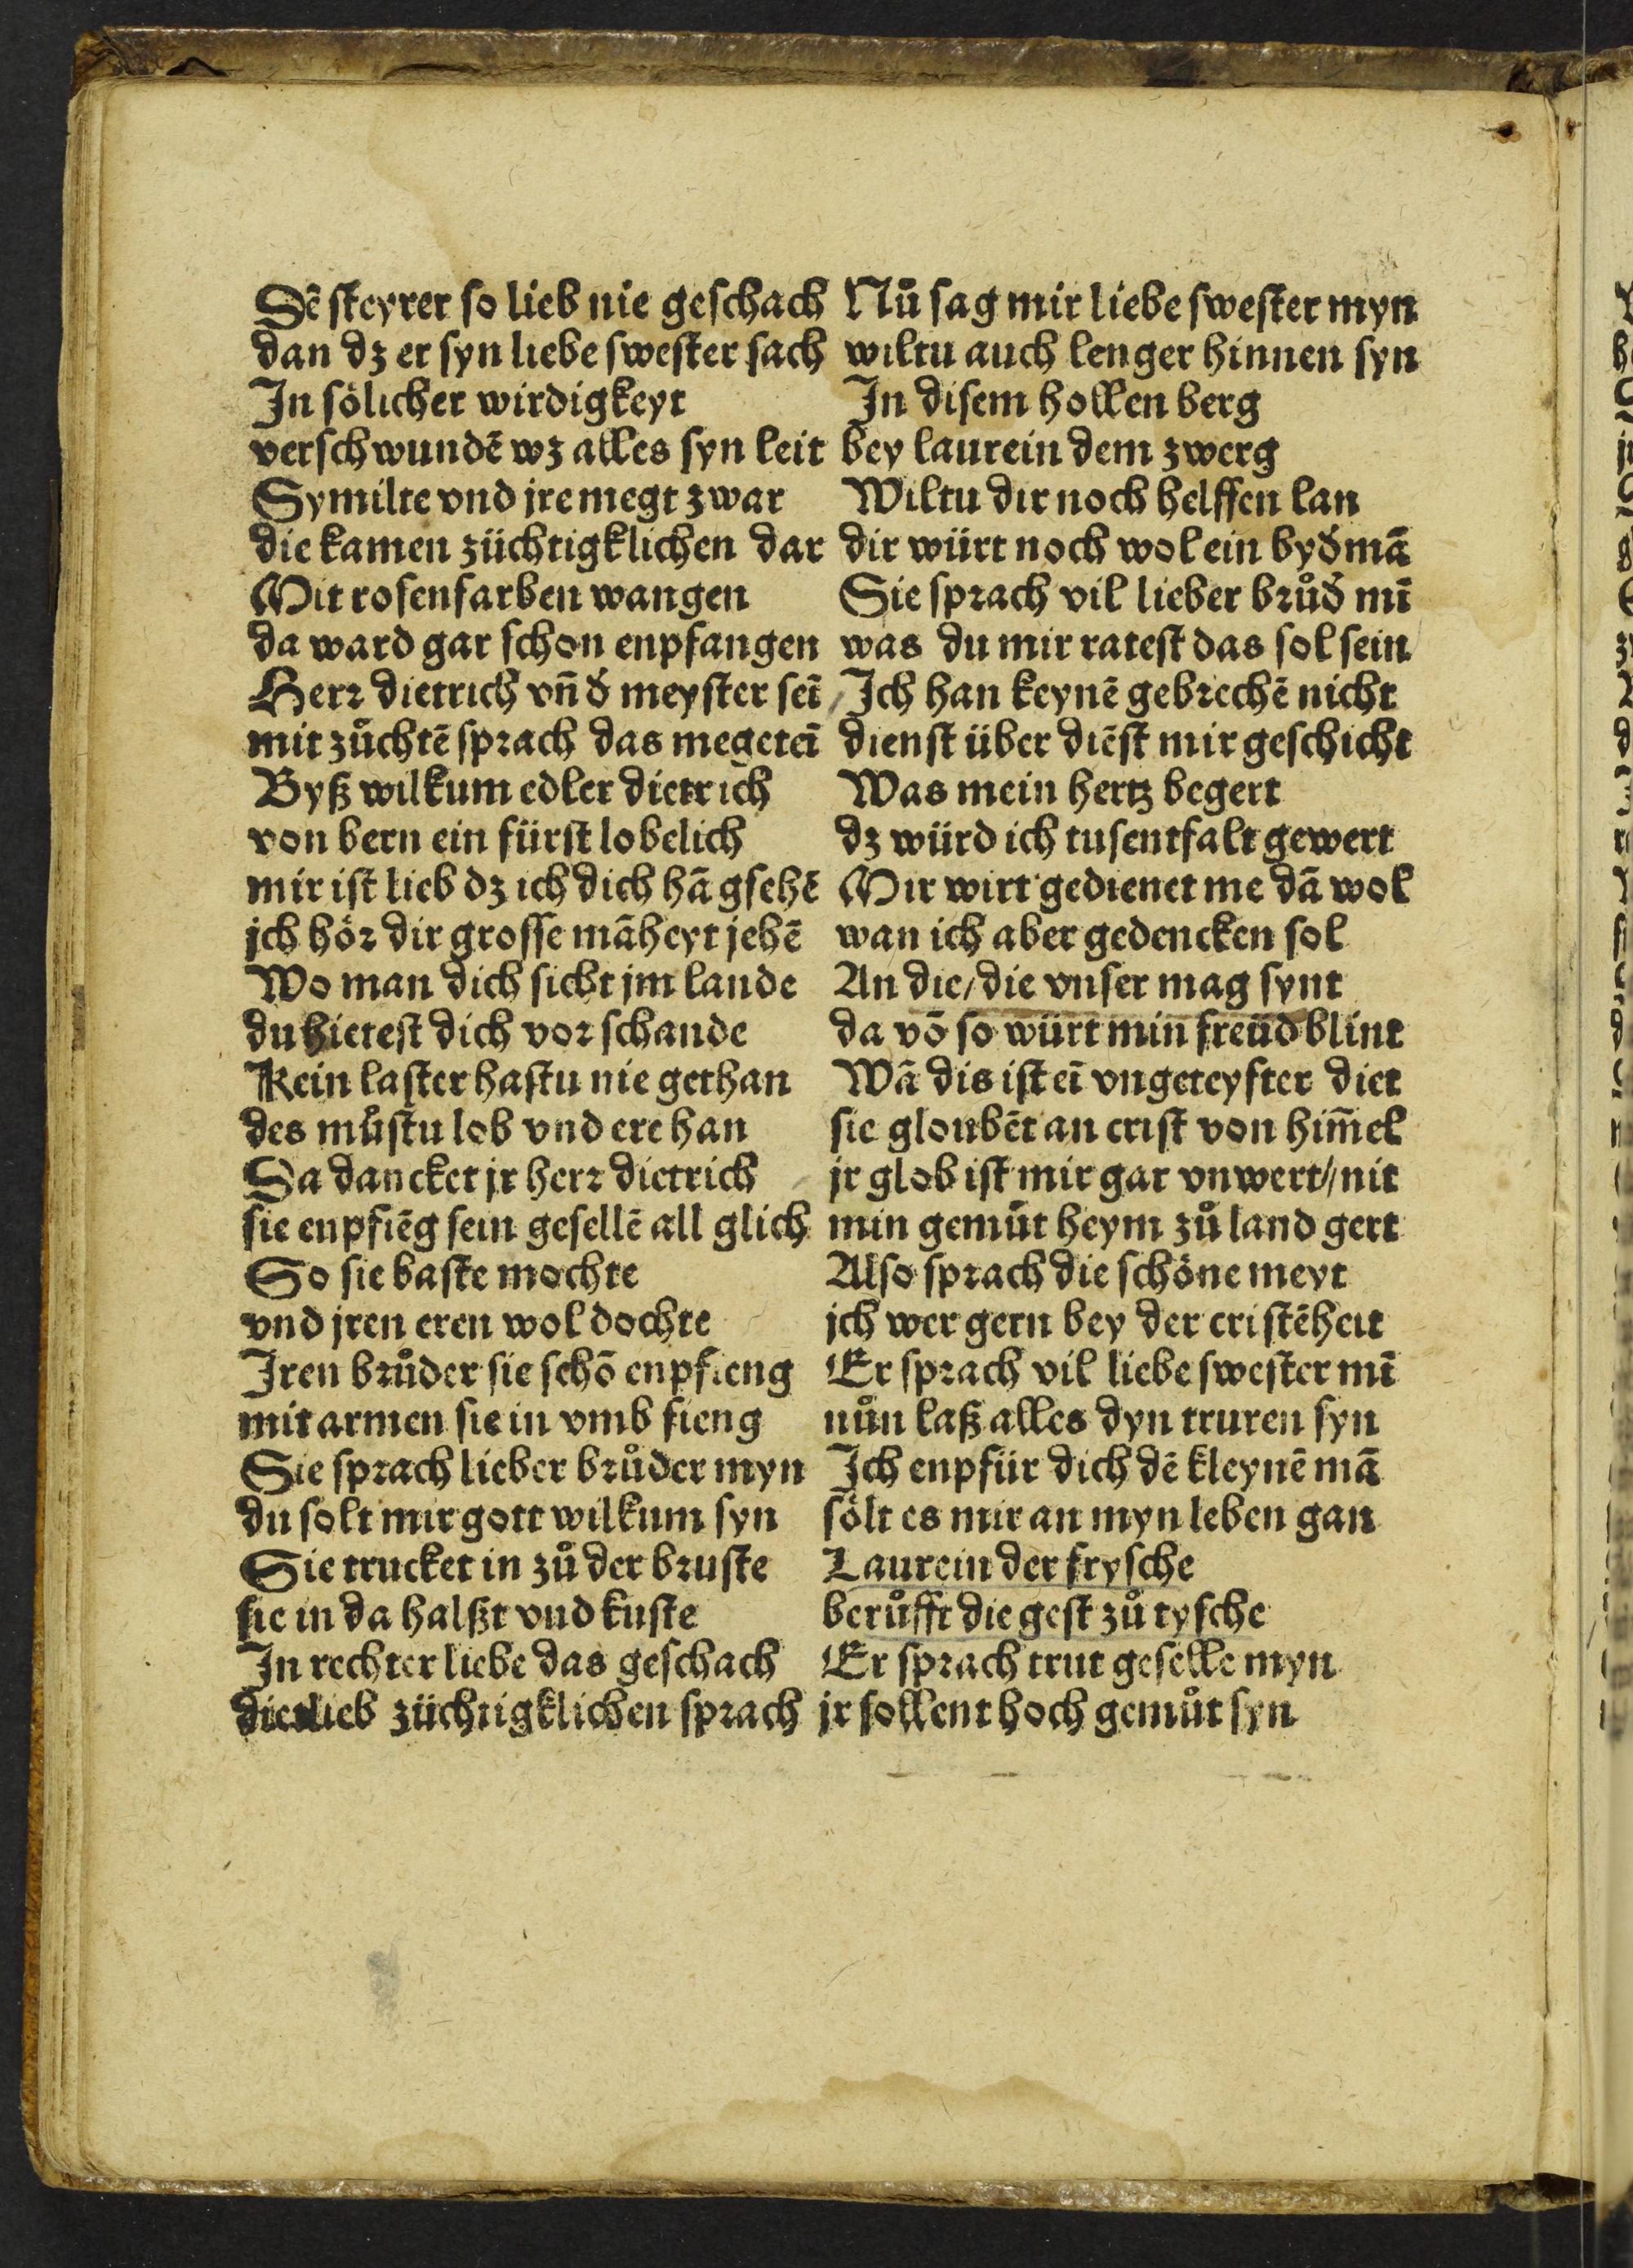 Dē steyrer so lieb nie geschach
dan dz er syn liebe swester sach
In sölicher wirdigkeyt
verschwundē wz alles syn leit
Symilte vnd jre megt zwar
die kamen züchtigklichen dar
Mit rosenfarben wangen
da ward gar schon enpfangen
Herr dietrich vn̄ d̄ meyster seī
mit zůchtē sprach das megeteī
Byß wilkum edler dietrich
von bern ein fürst lobelich
mir ist lieb dz ich dich hā gsehē
jch hör dir grosse māheyt jehē
Wo man dich sicht jm lande
du hietest dich vor schande
Kein laster hastu nie gethan
des můstu lob vnd ere han
Da dancket jr herr dietrich
sie enpfiēg sein gesellē all glich
So sie baste mochte
vnd jren eren wol dochte
Iren brůder sie schō enpfieng
mit armen sie in vmb fieng
Sie sprach lieber brůder myn
du solt mir gott wilkum syn
Sie trucket in zů der bruste
sie in da halßt vnd kuste
In rechter liebe das geschach
dietlieb züchtigklichen sprach
Nů sag mir liebe swester myn
wiltu auch lenger hinnen syn
In disem hollen berg
bey laurein dem zwerg
Wiltu dir noch helffen lan
dir würt noch wol ein byd̄mā
Sie sprach vil lieber brůd̄ mī
was du mir ratest das sol sein
Ich han keynē gebrechē nicht
dienst über diēst mir geschicht
Was mein hertz begert
dz würd ich tusentfalt gewert
Mir wirt gedienet me dā wol
wan ich aber gedencken sol
An die / die vnser mag synt
da vō so würt min freüd blint
Wā dis ist eī vngeteyfter diet
sie gloubēt an crist von him̄el
jr glob ist mir gar vnwert // nit
min gemůt heym zů land gert
Also sprach die schöne meyt
jch wer gern bey der cristēheit
Er sprach vil liebe swester mī
nůn laß alles dyn truren syn
Ich enpfür dich dē kleynē mā
sölt es mir an myn leben gan
Laurein der frysche
berůfft die gest zů tysche
Er sprach trut geselle myn
jr sollent hoch gemůt syn